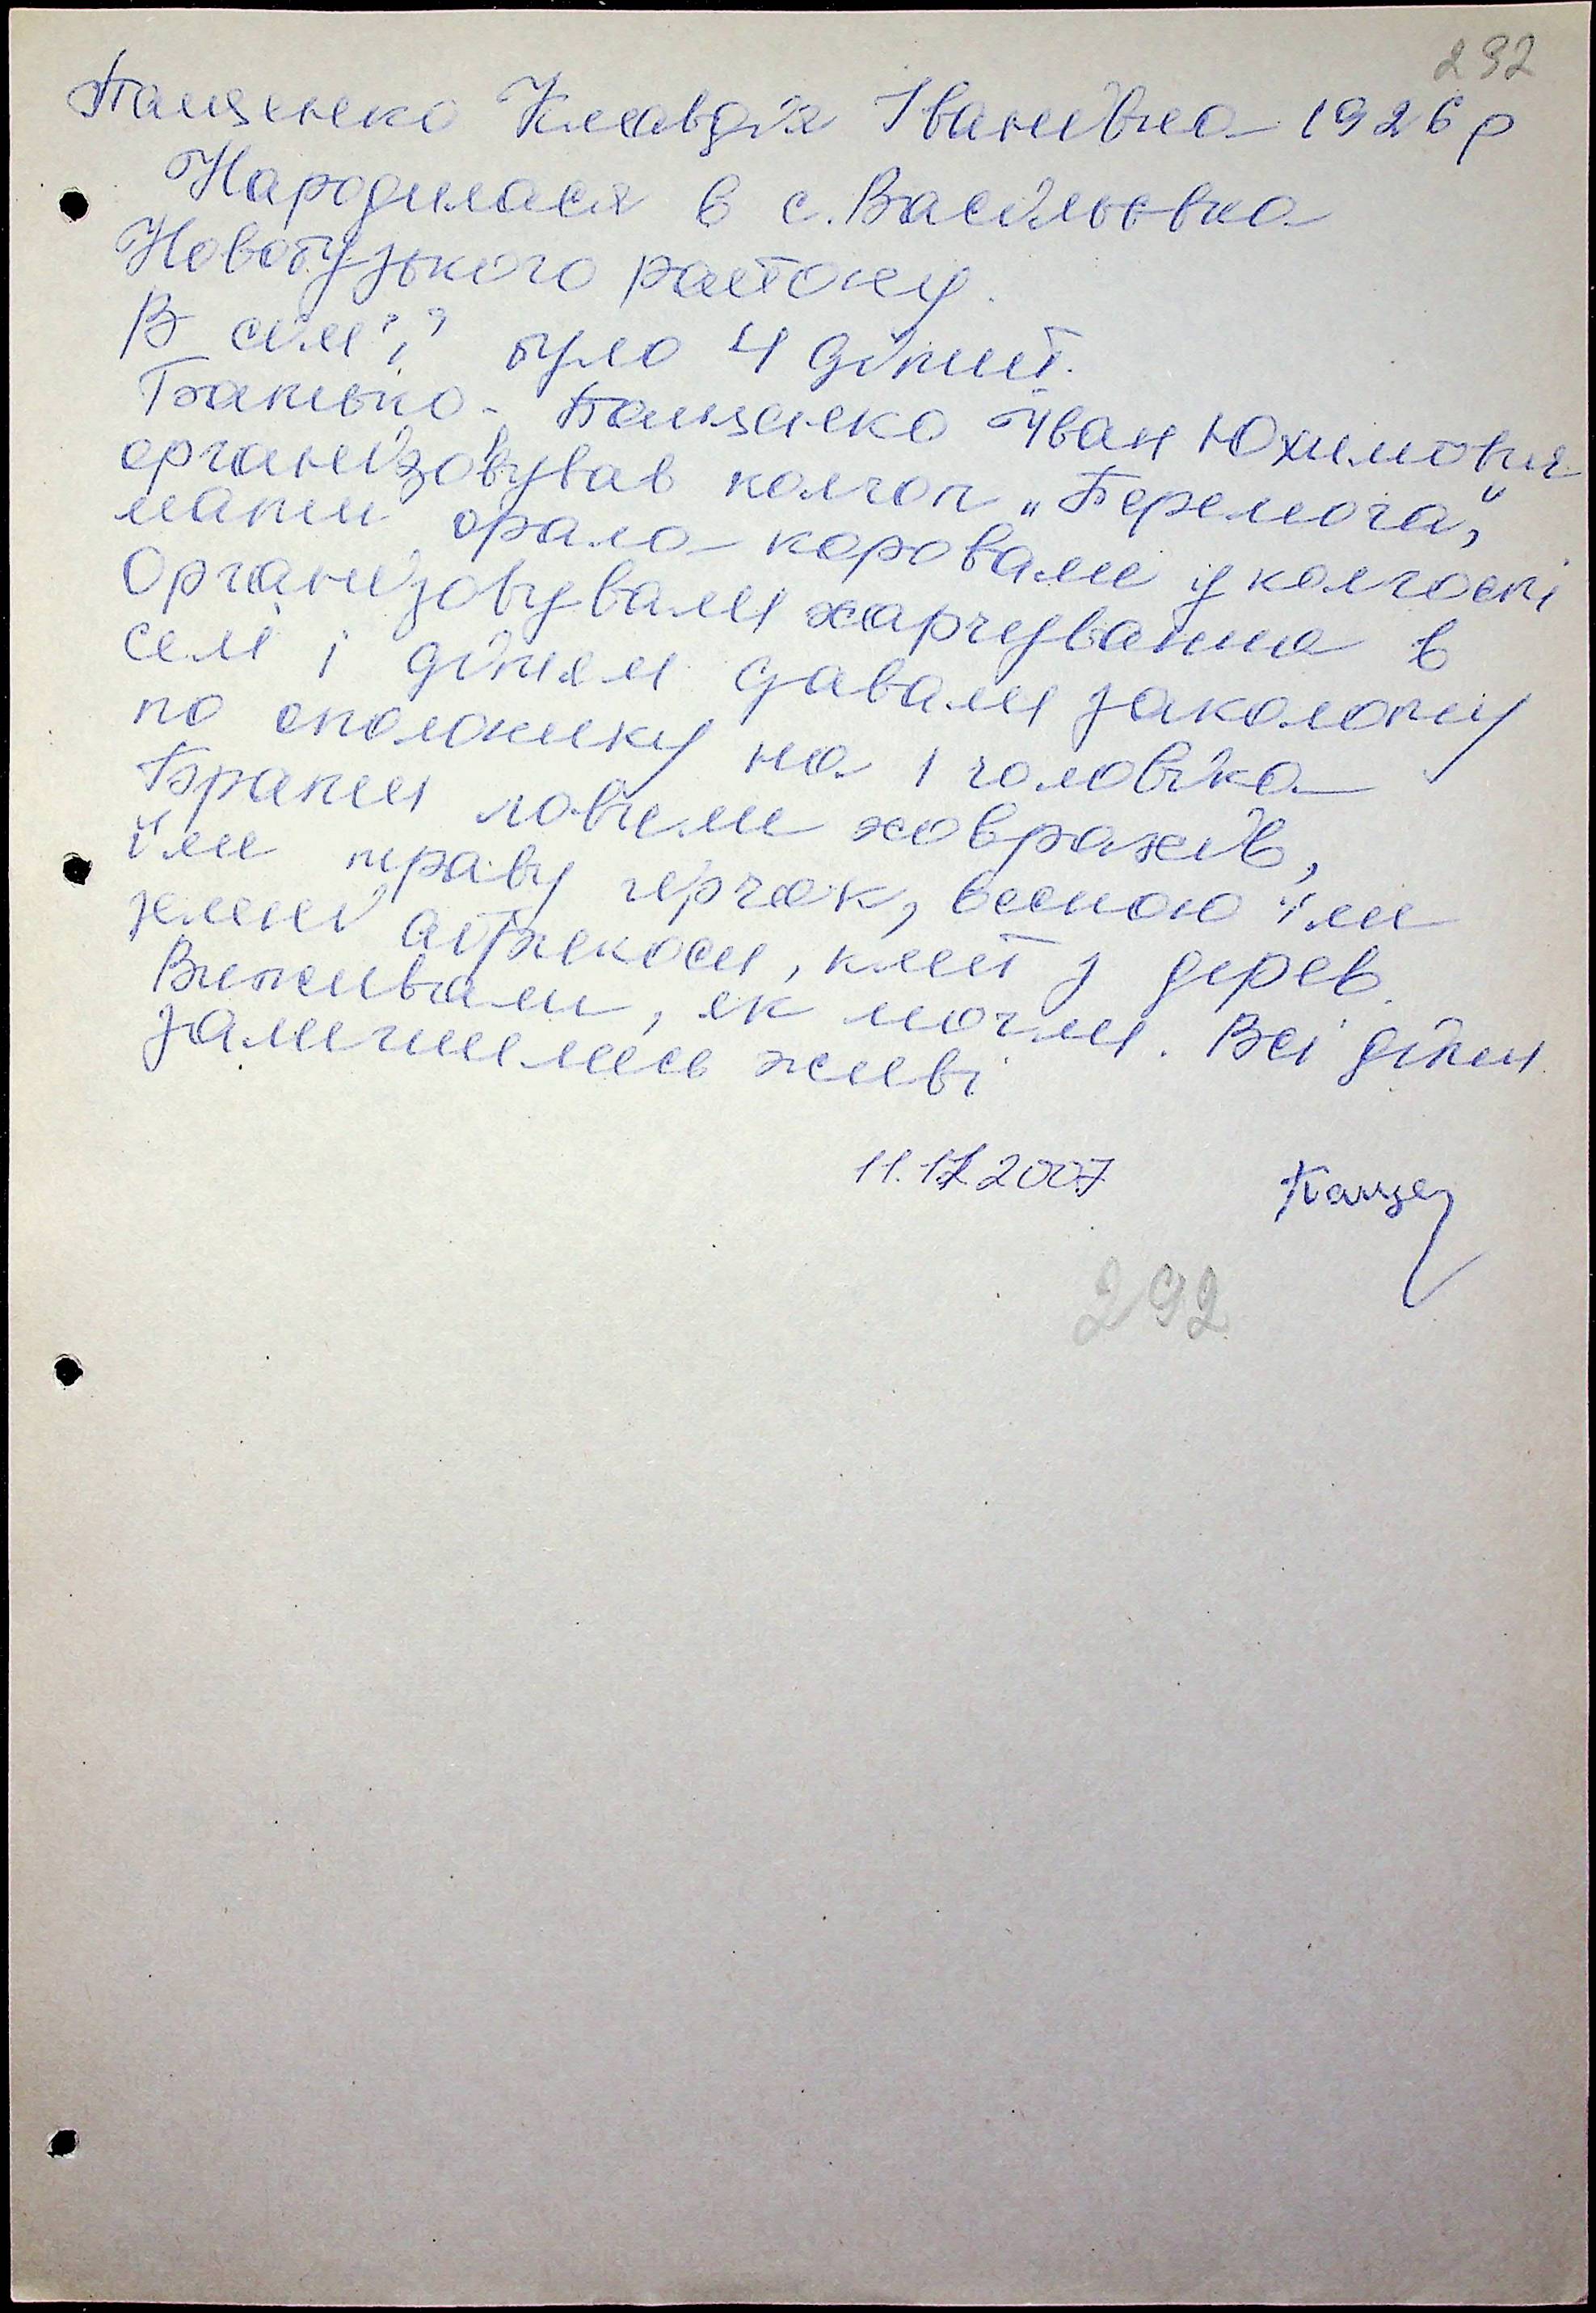 292
Пащенко Клавдія Іванівна 1926 р
Народилася в с. Васильовка
Новобузького району.
В сім'ї було 4 дітий.
Батько - Пащенко Іван Юхимович
організовував колгоп „Перемога",
мати орала коровами у колгоспі
Організовували харчування в
селі і дітям давали заколоту
по ополонику на 1 чоловіка
Брати ловили ховрахів,
їли траву герчак, весною їли
зелені абрикоси, клей з дерев.
Виживали, як могли. Всі діти
залишились живі
2007 Паще
292